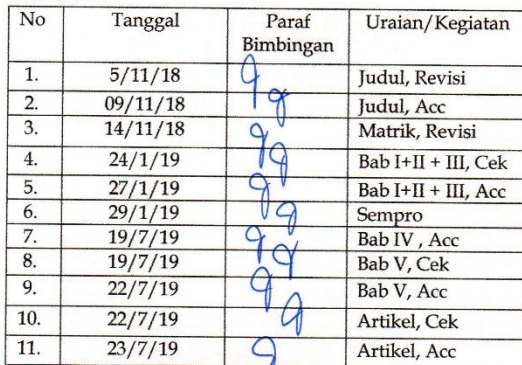 No Tanggal Paraf Bimbingan Uraian/Kegiatan
1. 5/11/18 Judul, Revisi
2. 09/11/18 Judul, Acc
3. 14/11/18 Matrik, Revisi
4. 24/1/19 Bab I+II + III, Cek
5. 27/1/19 Bab I+II + III, Acc
6. 29/1/19 Sempro
7. 19/7/19 Bab IV , Acc
8. 19/7/19 Bab V, Cek
9. 22/7/19 Bab V, Acc
10. 22/7/19 Artikel, Cek
11. 23/7/19 Artikel, Acc